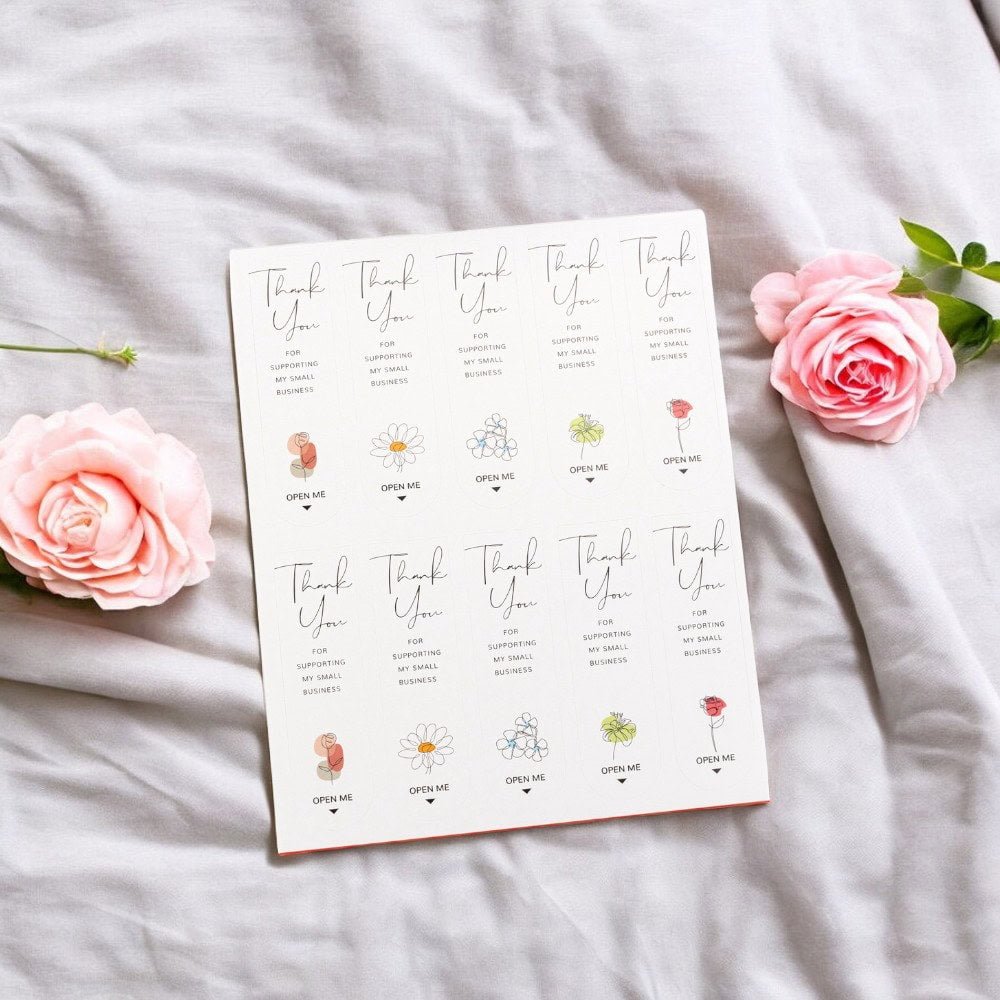 Thank
You
FOR
SUPPORTING
MY SMALL
BUSINESS
OPEN ME
Thank
You
FOR
SUPPORTING
MY SMALL
BUSINESS
OPEN ME
Thank
You
FOR
SUPPORTING
MY SMALL
BUSINESS
OPEN ME
Thank
You
FOR
SUPPORTING
MY SMALL
BUSINESS
OPEN ME
Thank
You
FOR
SUPPORTING
MY SMALL
BUSINESS
OPEN ME
Thank
You
FOR
SUPPORTING
MY SMALL
BUSINESS
OPEN ME
Thank
You
FOR
SUPPORTING
MY SMALL
BUSINESS
OPEN ME
Thank
You
FOR
SUPPORTING
MY SMALL
BUSINESS
OPEN ME
Thank
You
FOR
SUPPORTING
MY SMALL
BUSINESS
OPEN ME
Thank
You
FOR
SUPPORTING
MY SMALL
BUSINESS
OPEN ME